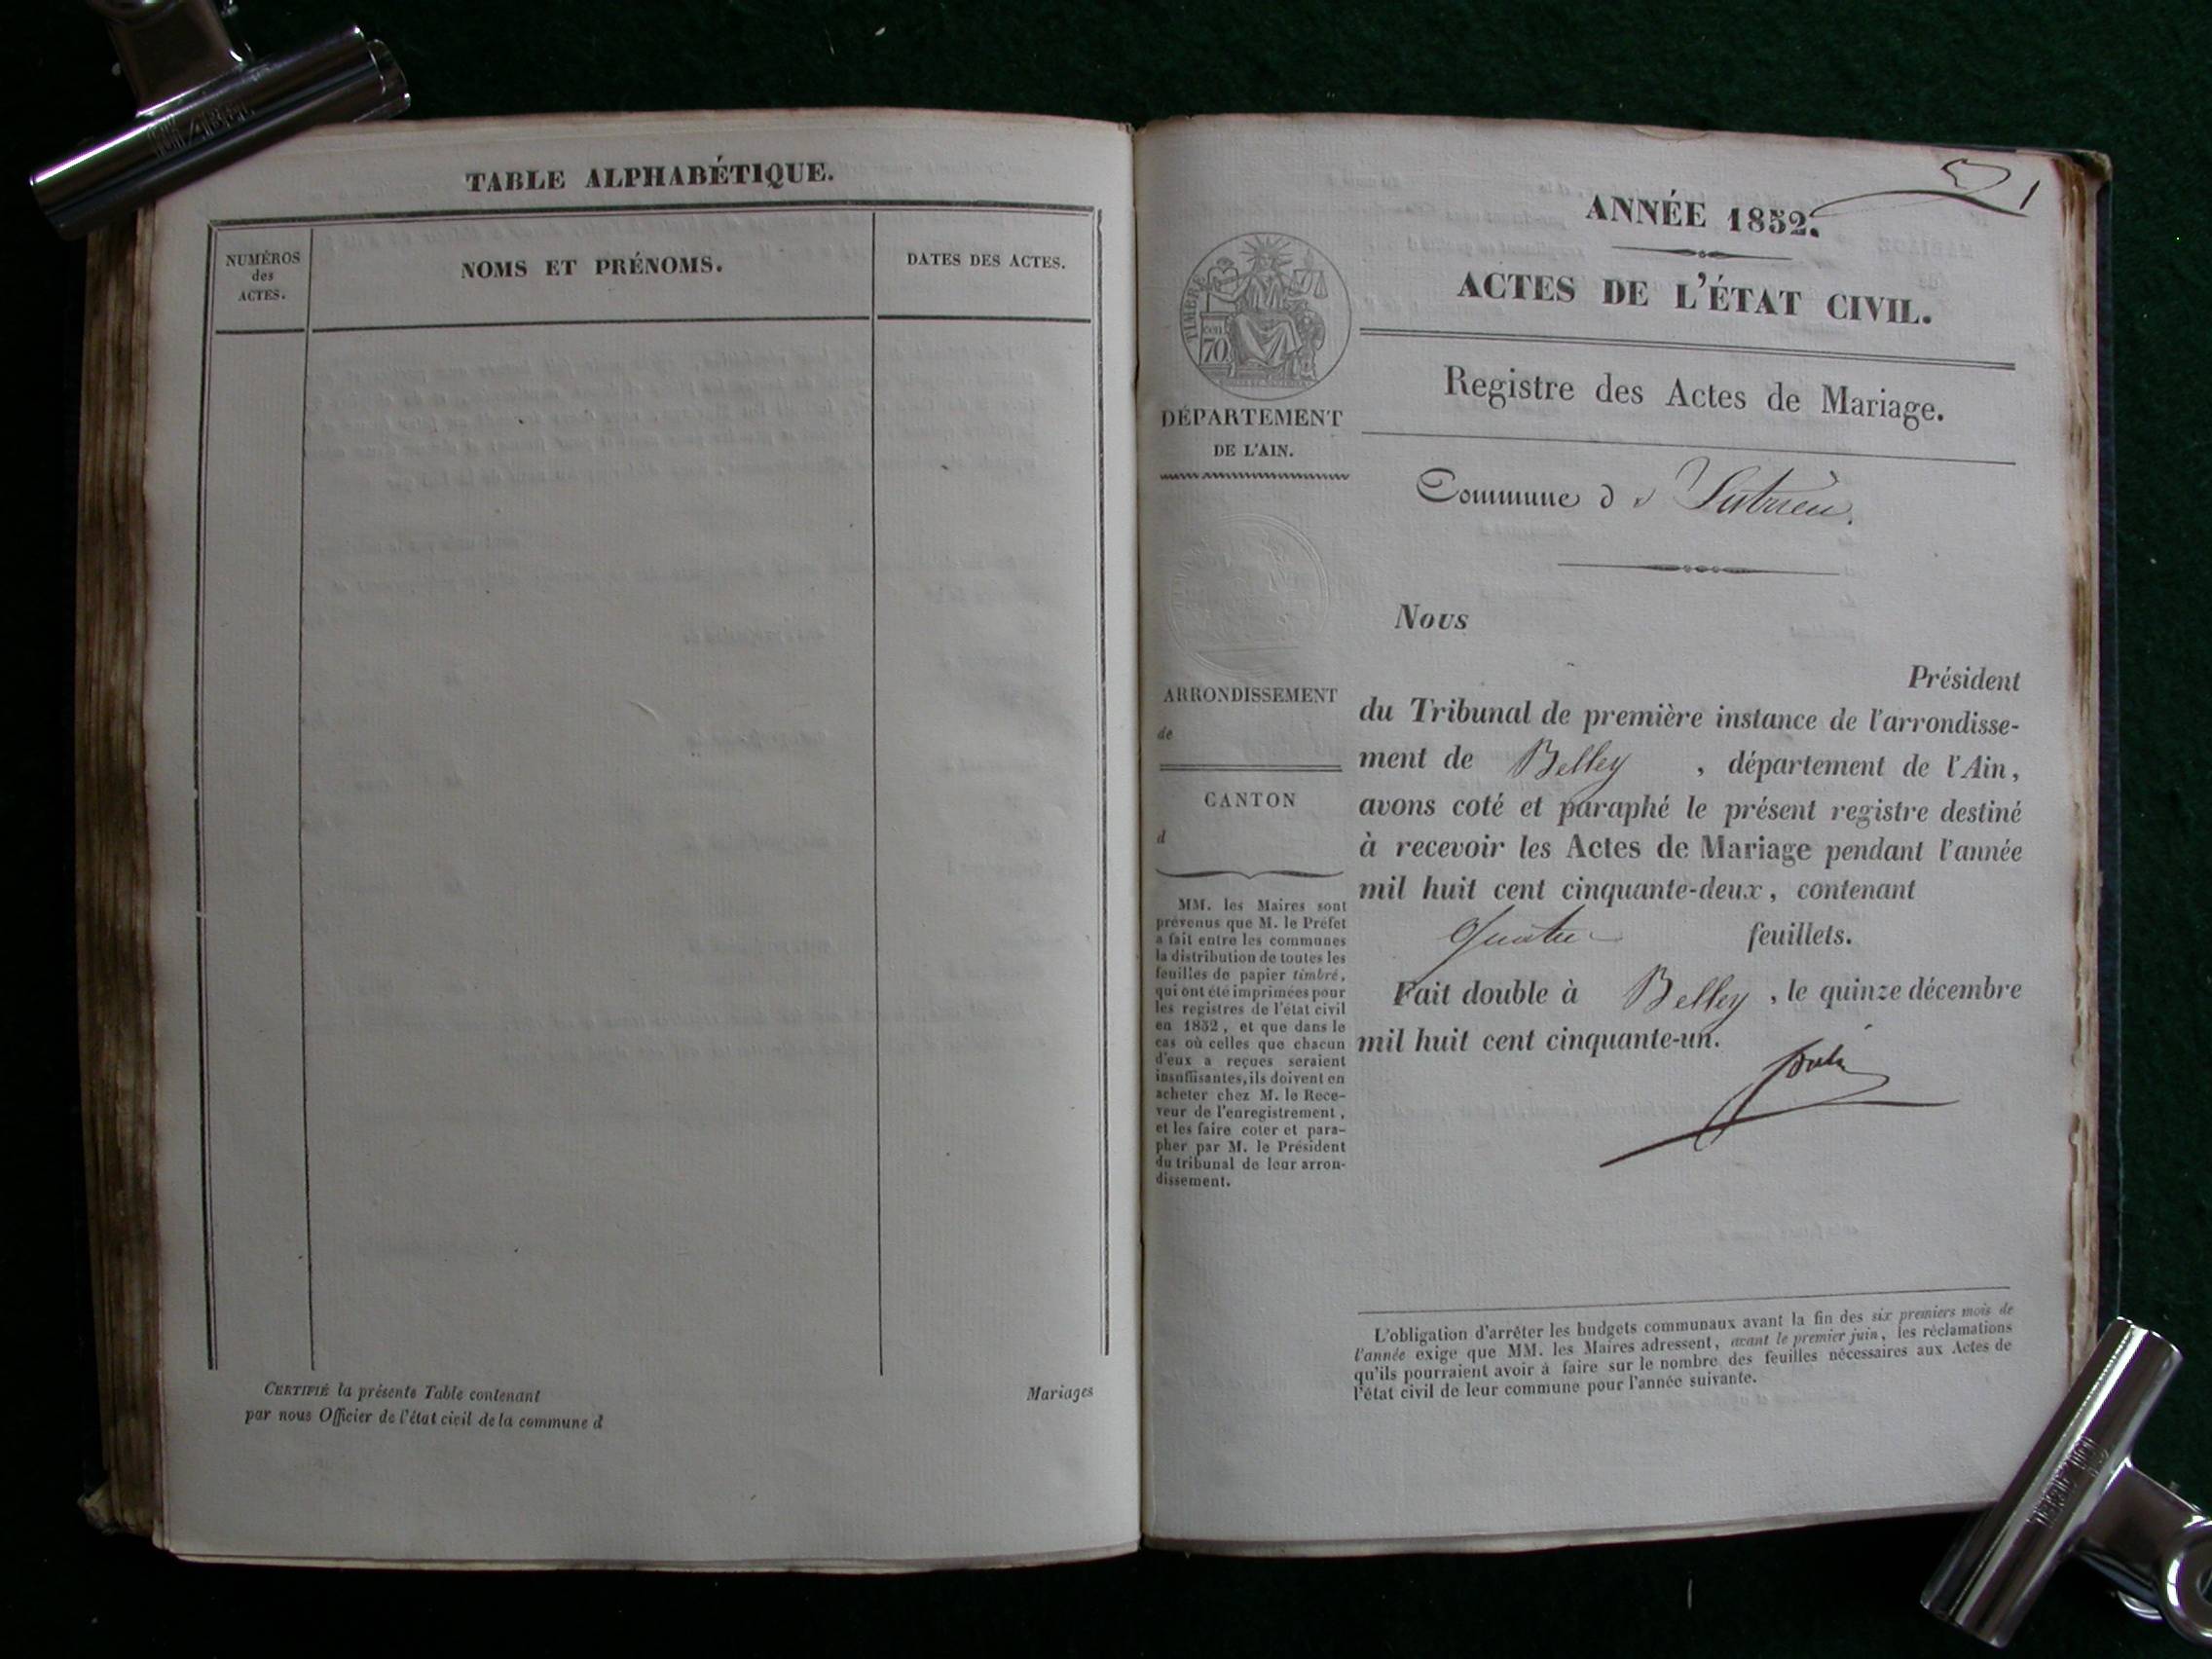 TABLE ALPHABÉTIQUE.
NUMÉROS
des
ACTES.
NOMS ET PRÉNOMS.
DATES DES ACTES.
CERTIFIÉ la présente Table contenant Mariages
par nous Officier de l'état civil de la commune d
1
ANNÉE 1852.
ACTES DE L'ÉTAT CIVIL.
Registre des Actes de Mariage.
TIMBRE
cen
70
DÉPARTEMENT
DE L'AIN.
Commune d Sutrieu.
Nous
Président
du Tribunal de première instance de l'arrondisse-
ment de Belley, département de l'Ain,
avons coté et paraphé le présent registre destiné
à recevoir les Actes de Mariage pendant l'année
mil huit cent cinquante-deux, contenant
Quatre feuillets.
Fait double à Belley, le quinze décembre
mil huit cent cinquante-un.
ARRONDISSEMENT
de
CANTON
d
MM. les Maires sont
prévenus que M. le Préfet
a fait entre les communes
la distribution de toutes les
feuilles de papier timbré,
qui ont été imprimées pour
les registres de l'état civil
en 1852, et que dans le
cas où celles que chacun
d'eux a reçues seraient
insuffisantes, ils doivent en
acheter chez M. le Rece-
veur de l'enregistrement,
et les faire coter et para-
pher par M. le Président
du tribunal de leur arron-
dissement.
L'obligation d'arrêter les budgets communaux avant la fin des six premiers mois de
l'année exige que MM. les Maires adressent, avant le premier juin, les réclamations
qu'ils pourraient avoir à faire sur le nombre des feuilles nécessaires aux Actes de
l'état civil de leur commune pour l'année suivante.